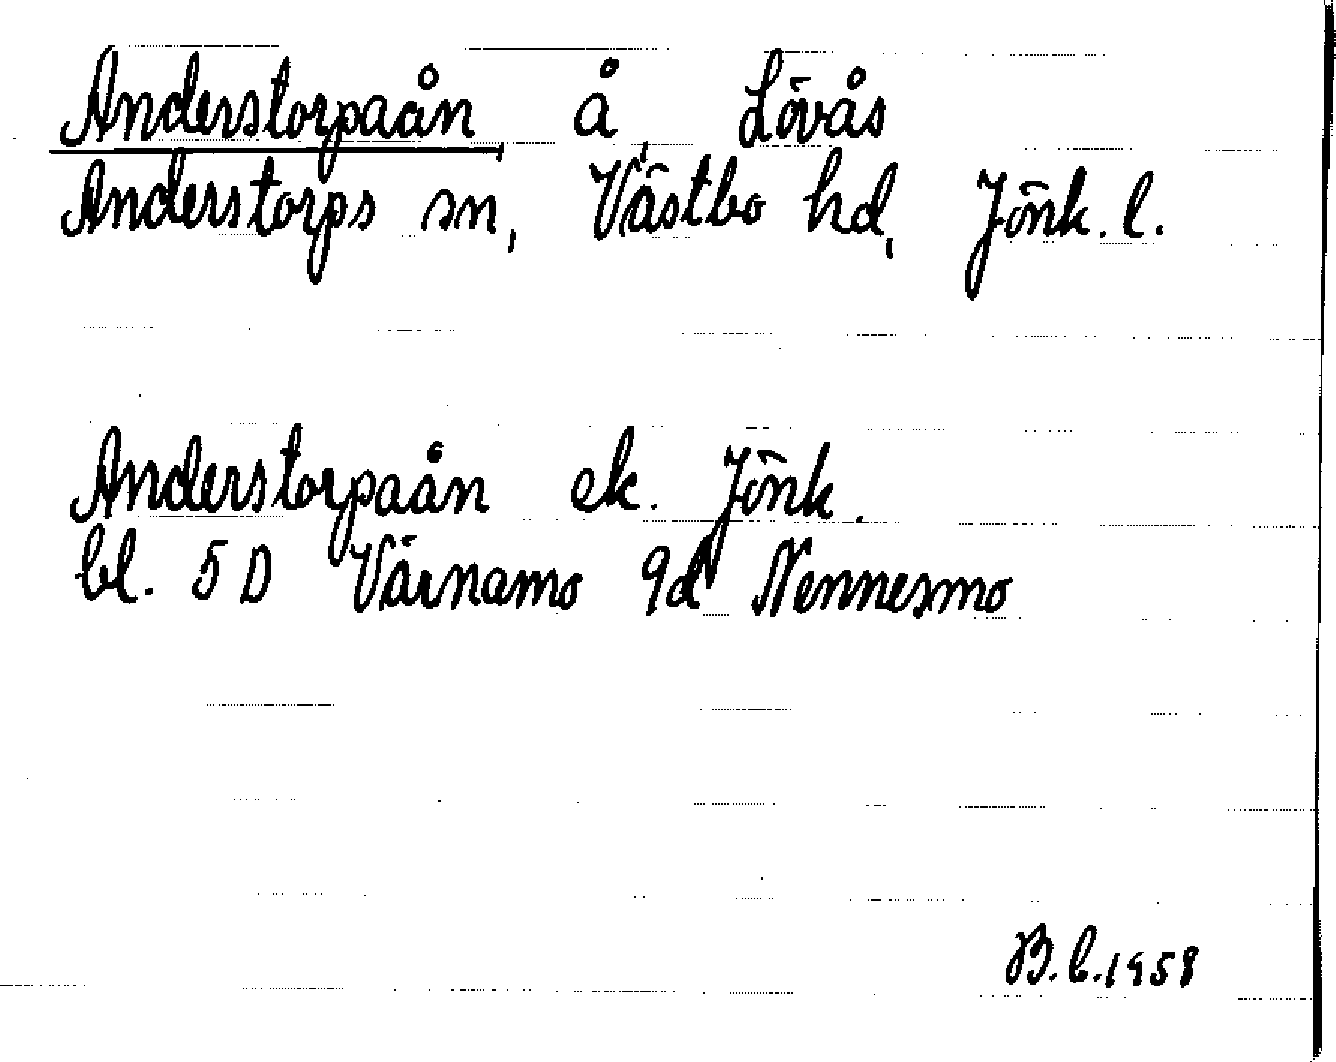 Anderstorpaån, å, Lövås
Anderstorps sn, Västbo hd, Jönk. l.
Anderstorpaån ek. Jönk.
bl. 5 D Värnamo 9d Nennesmo
B.b.1958